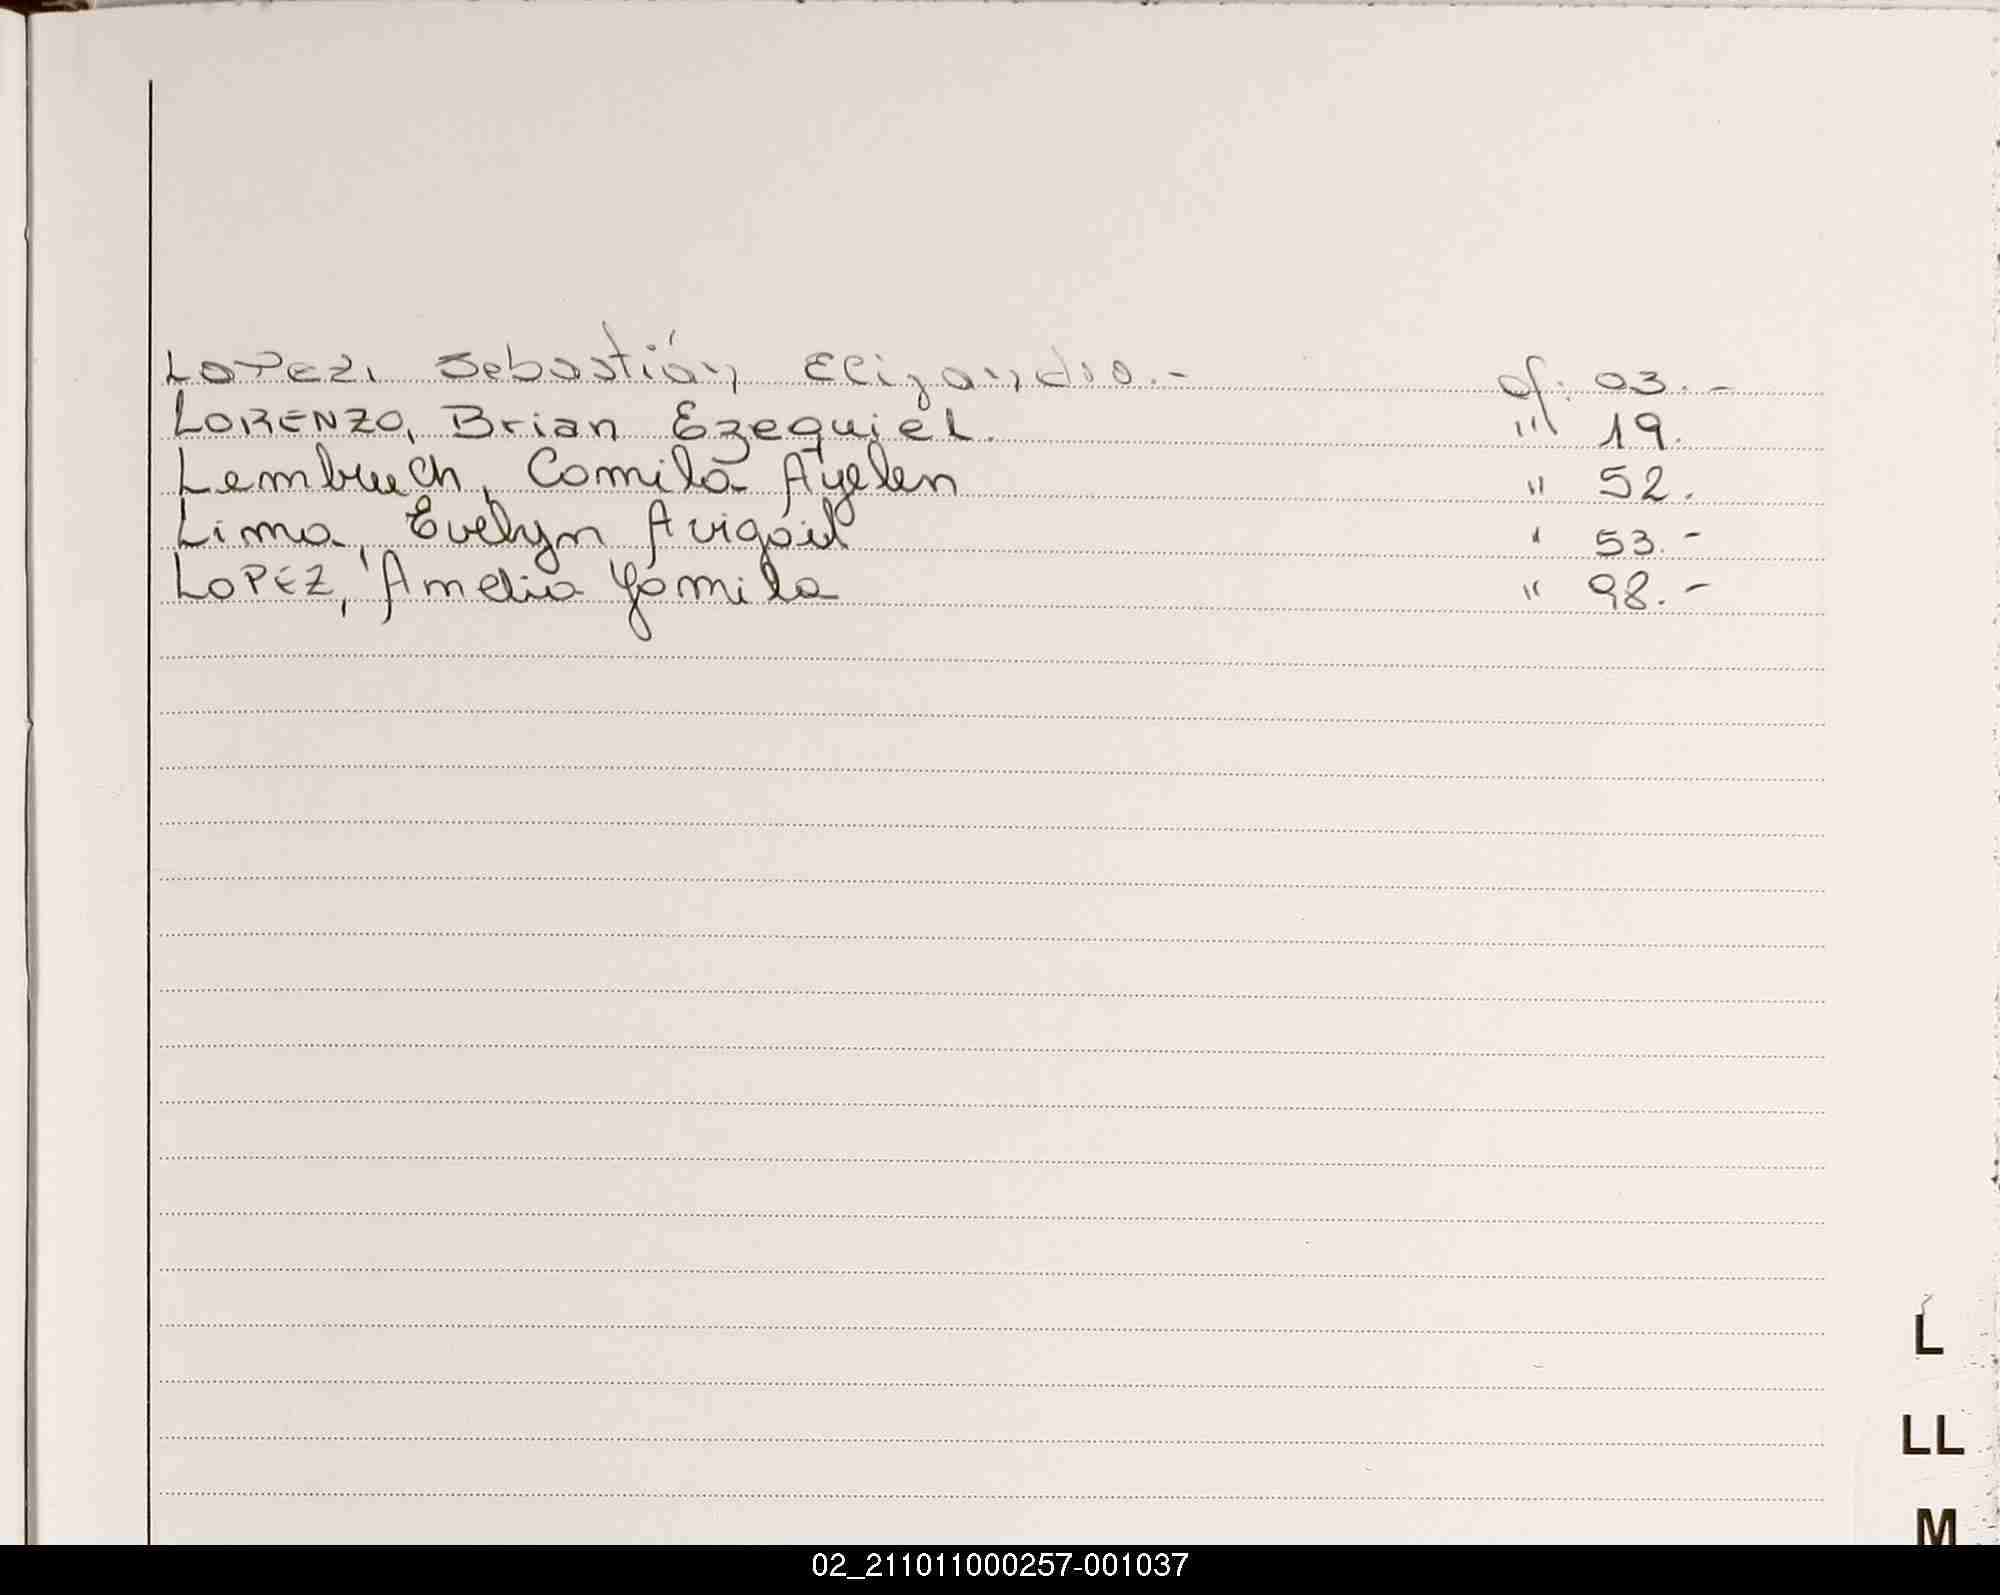 LOPEZ, Sebastián Elizandro.- of. 03.-
LORENZO, Brian Ezequiel. " 19.
Lembruch, Camila Ayelen " 52.
Lima, Evelyn Avigail " 53.-
LOPEZ, Amelia Yamila " 98.-
L
LL
M
02_211011000257-001037